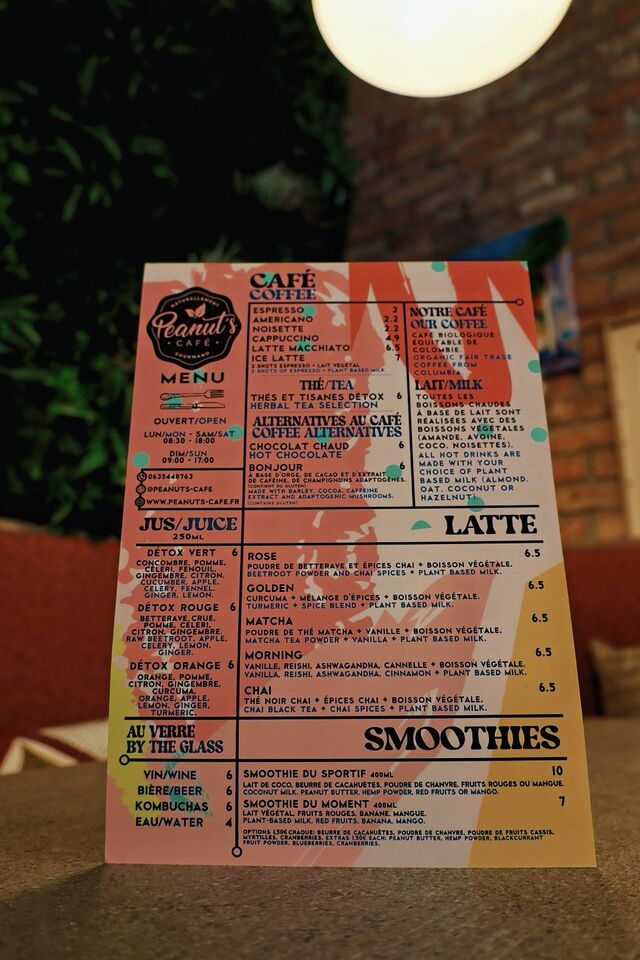 NATURELLEMENT
Peanut's
CAFÉ
GOURMAND
MENU
OUVERT/OPEN
LUN/MON - SAM/SAT
08:30 - 18:00
DIM/SUN
09:00 - 17:00
0635448762
@PEANUTS-CAFE
WWW.PEANUTS-CAFE.FR
CAFÉ
COFFEE
ESPRESSO 2
AMERICANO 2.2
NOISETTE 2.2
CAPPUCCINO 4.9
LATTE MACCHIATO 6.5
ICE LATTE 7
2 SHOTS ESPRESSO + LAIT VÉGÉTAL
2 SHOTS OF ESPRESSO + PLANT BASED MILK
THÉ/TEA
THÉS ET TISANES DÉTOX 6
HERBAL TEA SELECTION
ALTERNATIVES AU CAFÉ
COFFEE ALTERNATIVES
CHOCOLAT CHAUD 6
HOT CHOCOLATE
BONJOUR 6
À BASE D'ORGE, DE CACAO ET D'EXTRAIT
DE CAFÉINE, DE CHAMPIGNONS ADAPTOGÈNES.
(CONTIENT DU GLUTEN)
MADE WITH BARLEY, COCOA, CAFFEINE
EXTRACT AND ADAPTOGENIC MUSHROOMS.
NOTRE CAFÉ
OUR COFFEE
CAFÉ BIOLOGIQUE
ÉQUITABLE DE
COLOMBIE.
ORGANIC FAIR TRADE
COFFEE FROM
COLUMBIA.
LAIT/MILK
TOUTES LES
BOISSONS CHAUDES
À BASE DE LAIT SONT
RÉALISÉES AVEC DES
BOISSONS VÉGÉTALES
(AMANDE, AVOINE,
COCO, NOISETTES).
ALL HOT DRINKS ARE
MADE WITH YOUR
CHOICE OF PLANT
BASED MILK (ALMOND,
OAT, COCONUT OR
HAZELNUT).
JUS/JUICE
250ML
DÉTOX VERT 6
CONCOMBRE, POMME,
CÉLERI, FENOUIL,
GINGEMBRE, CITRON.
CUCUMBER, APPLE,
CELERY, FENNEL,
GINGER, LEMON.
DÉTOX ROUGE 6
BETTERAVE CRUE,
POMME, CÉLERI,
CITRON, GINGEMBRE.
RAW BEETROOT, APPLE,
CELERY, LEMON,
GINGER.
DÉTOX ORANGE 6
ORANGE, POMME,
CITRON, GINGEMBRE,
CURCUMA.
ORANGE, APPLE,
LEMON, GINGER,
TURMERIC.
LATTE
ROSE 6.5
POUDRE DE BETTERAVE ET ÉPICES CHAI + BOISSON VÉGÉTALE.
BEETROOT POWDER AND CHAI SPICES + PLANT BASED MILK.
GOLDEN 6.5
CURCUMA + MÉLANGE D'ÉPICES + BOISSON VÉGÉTALE.
TURMERIC + SPICE BLEND + PLANT BASED MILK.
MATCHA 6.5
POUDRE DE THÉ MATCHA + VANILLE + BOISSON VÉGÉTALE.
MATCHA TEA POWDER + VANILLA + PLANT BASED MILK.
MORNING 6.5
VANILLE, REISHI, ASHWAGANDHA, CANNELLE + BOISSON VÉGÉTALE.
VANILLA, REISHI, ASHWAGANDHA, CINNAMON + PLANT BASED MILK.
CHAI 6.5
THÉ NOIR CHAI + ÉPICES CHAI + BOISSON VÉGÉTALE.
CHAI BLACK TEA + CHAI SPICES + PLANT BASED MILK.
AU VERRE
BY THE GLASS
VIN/WINE 6
BIÈRE/BEER 6
KOMBUCHAS 6
EAU/WATER 4
SMOOTHIES
SMOOTHIE DU SPORTIF 400ML 10
LAIT DE COCO, BEURRE DE CACAHUÈTES, POUDRE DE CHANVRE, FRUITS ROUGES OU MANGUE.
COCONUT MILK, PEANUT BUTTER, HEMP POWDER, RED FRUITS OR MANGO.
SMOOTHIE DU MOMENT 400ML 7
LAIT VÉGÉTAL, FRUITS ROUGES, BANANE, MANGUE.
PLANT-BASED MILK, RED FRUITS, BANANA, MANGO.
OPTIONS 1.50€ CHAQUE: BEURRE DE CACAHUÈTES, POUDRE DE CHANVRE, POUDRE DE FRUITS CASSIS,
MYRTILLES, CRANBERRIES. EXTRAS 1.50€ EACH: PEANUT BUTTER, HEMP POWDER, BLACKCURRANT
FRUIT POWDER, BLUEBERRIES, CRANBERRIES.